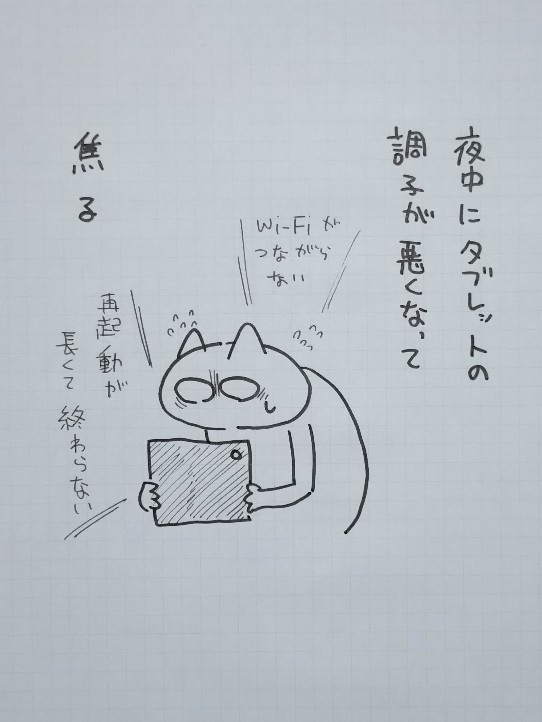 夜中にタブレットの
調子が悪くなって
焦る
Wi-Fiが
つながら
ない
再起動が
長くて終わらない